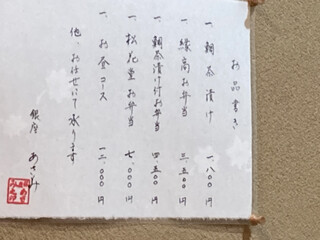 お品書き
一、鯛茶漬け 一、八〇〇円
一、縁高お弁当 三、五〇〇円
一、鯛茶漬け付お弁当 四、五〇〇円
一、松花堂お弁当 七、〇〇〇円
一、お食コース 一二、〇〇〇円
他、お任せにて承ります
銀座 あさみ